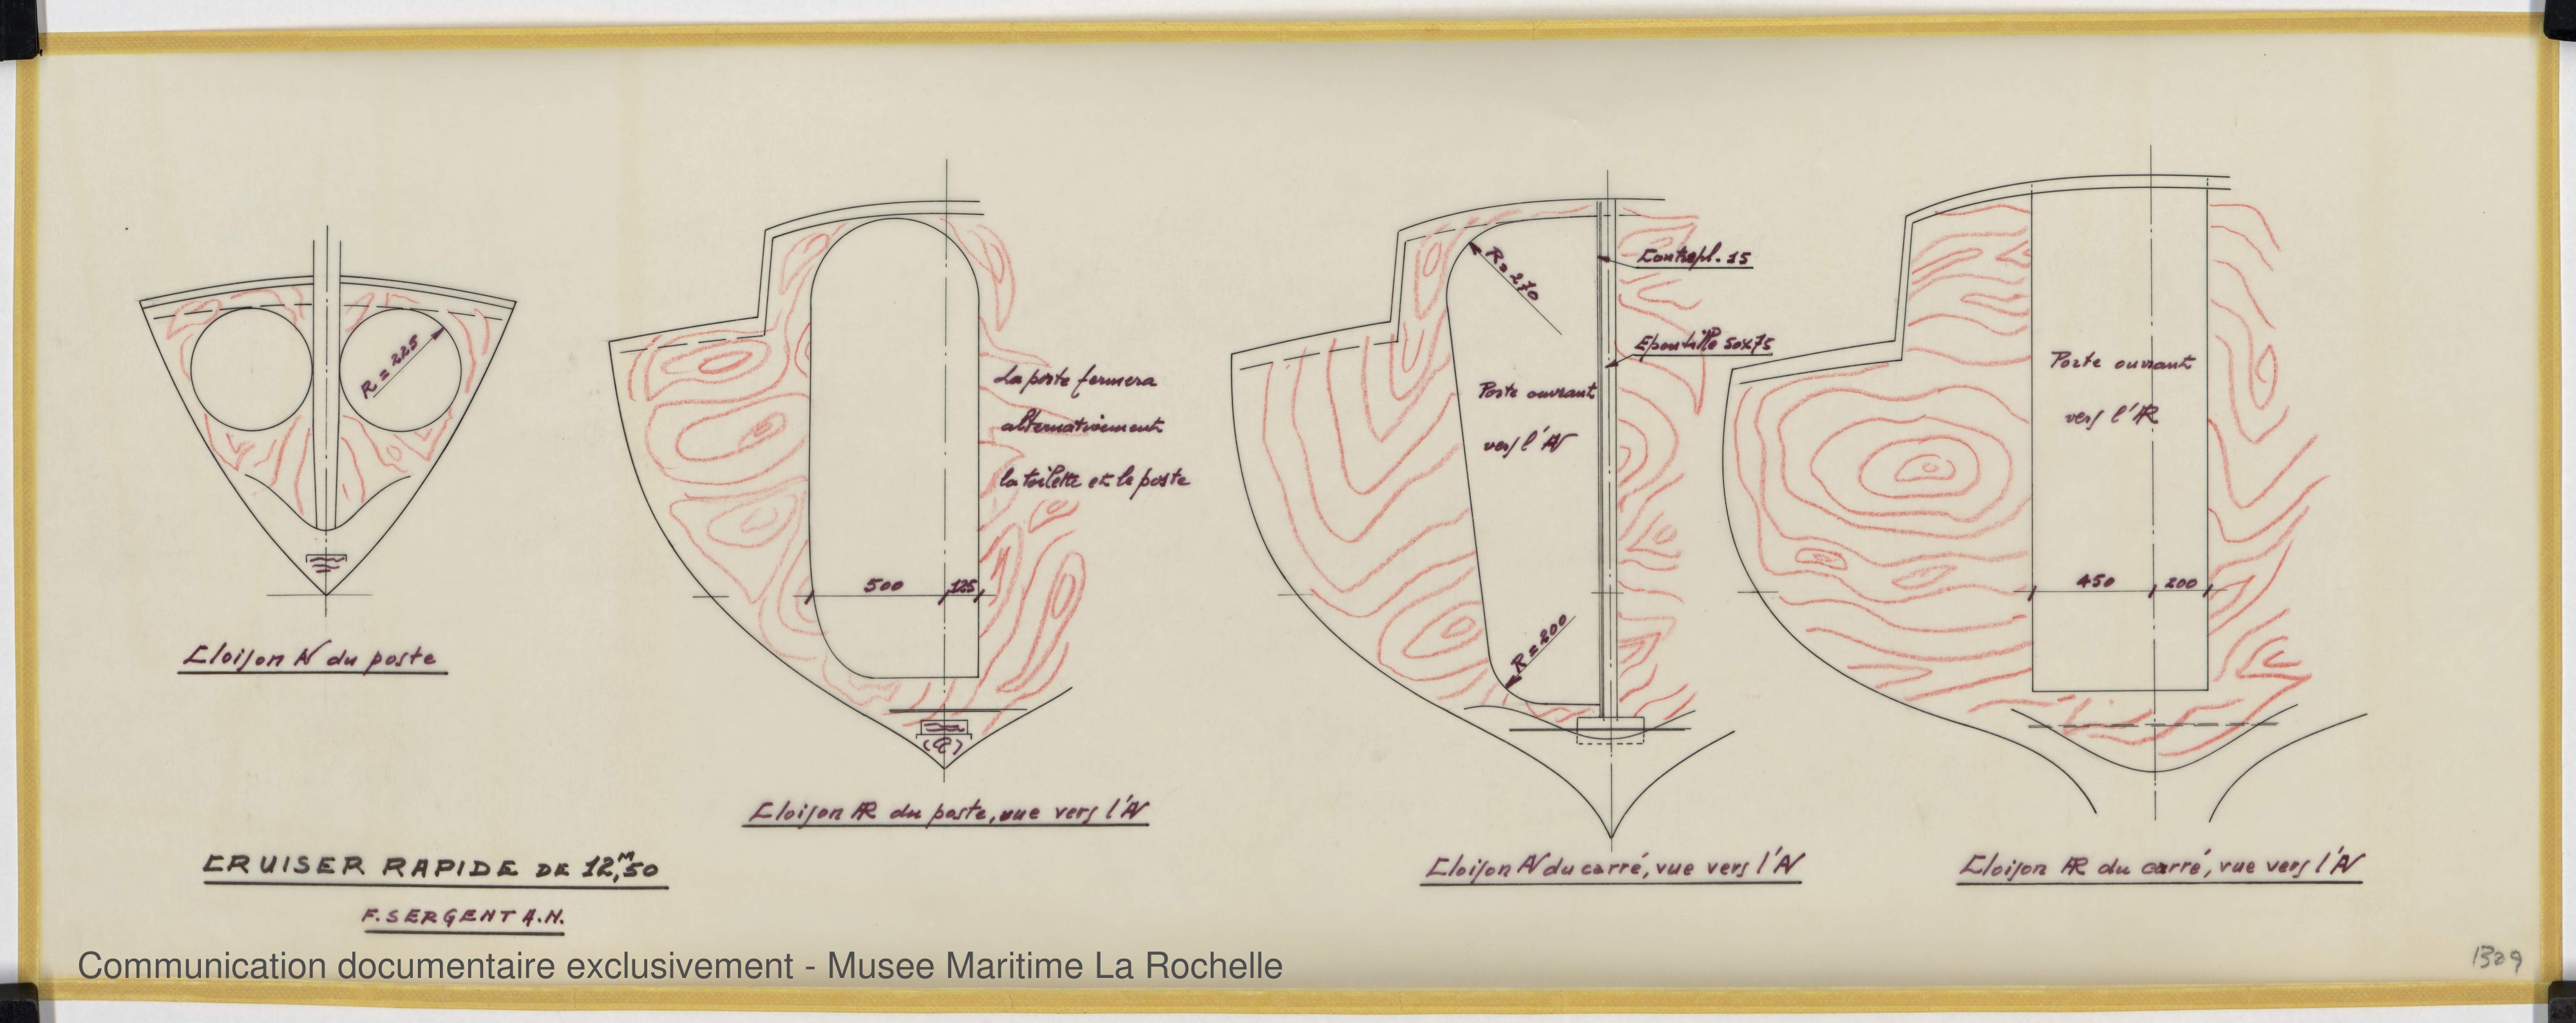 R = 225
Cloison AV du poste
La porte fermera
alternativement
la toilette et le poste
500
125
(R)
Cloison AR du poste, vue vers l'AV
R = 270
Contrepl. 15
Epontille 50x75
Porte ouvrant
vers l'AV
R = 200
Cloison AV du carré, vue vers l'AV
Porte ouvrant
vers l'AR
450
200
Cloison AR du carré, vue vers l'AV
CRUISER RAPIDE DE 12,M50
F. SERGENT A.N.
Communication documentaire exclusivement - Musee Maritime La Rochelle
1309